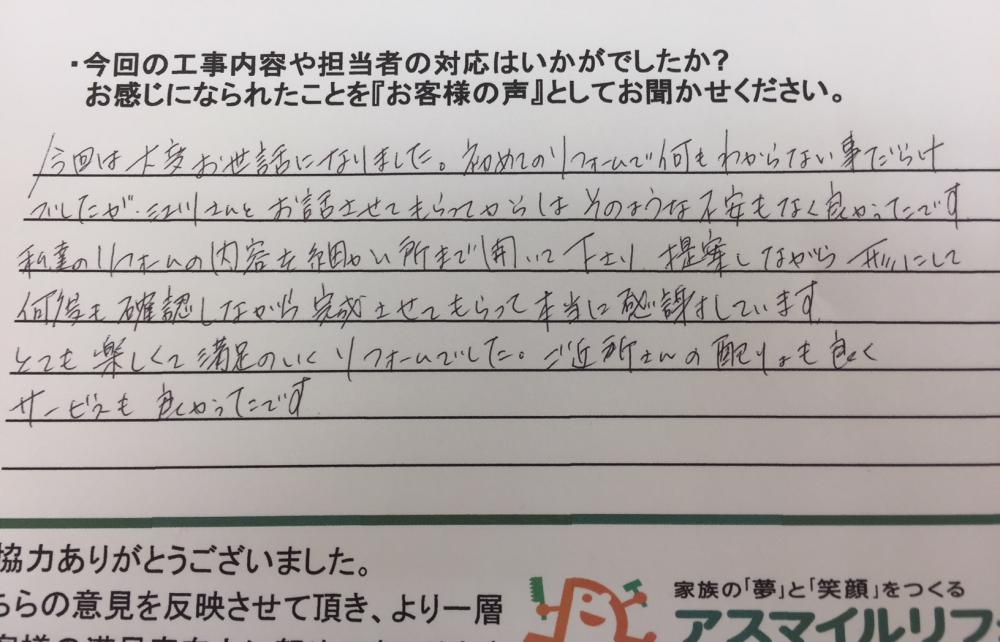 ・今回の工事内容や担当者の対応はいかがでしたか？
お感じになられたことを『お客様の声』としてお聞かせください。
今回は大変お世話になりました。初めてのリフォームで何もわからない事だらけ
でしたが、江川さんとお話させてもらってからはそのような不安もなく良かったです
私達のリフォームの内容を細かい所まで聞いて下さり、提案しながら形にして
何度も確認しながら完成させてもらって本当に感謝しています
とても楽しくて満足のいくリフォームでした。ご近所さんの配りょも良く
サービスも良かったです
協力ありがとうございました。
ちらの意見を反映させて頂き、より一層
家族の「夢」と「笑顔」をつくる
アスマイルリフ